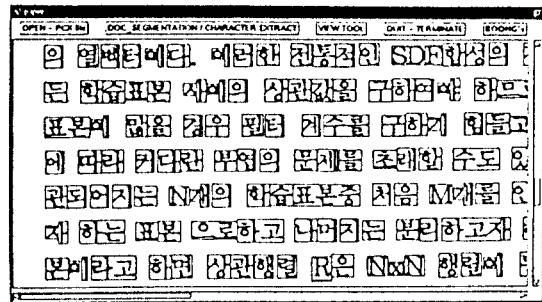 OPEN - PCX file DOC. SEGMENTATION / CHARACTER EXTRACT VIEW TOOL QUIT - TERMINATE
의 열벡터이다. 이러한 전통적인 SDF합성의
든 학습표본 사이의 상관값을 구하여야 하므
표본이 많을 경우 필터 계수를 구하기 힘들고
에 따라 커다란 부하의 문제를 초래할 수도 있
관되어지는 N개의 학습표본중 처음 M개를
자 하는 표본 으로하고 나머지는 분리하고자
본이라고 하면 상관행렬 R은 NxN 행렬이